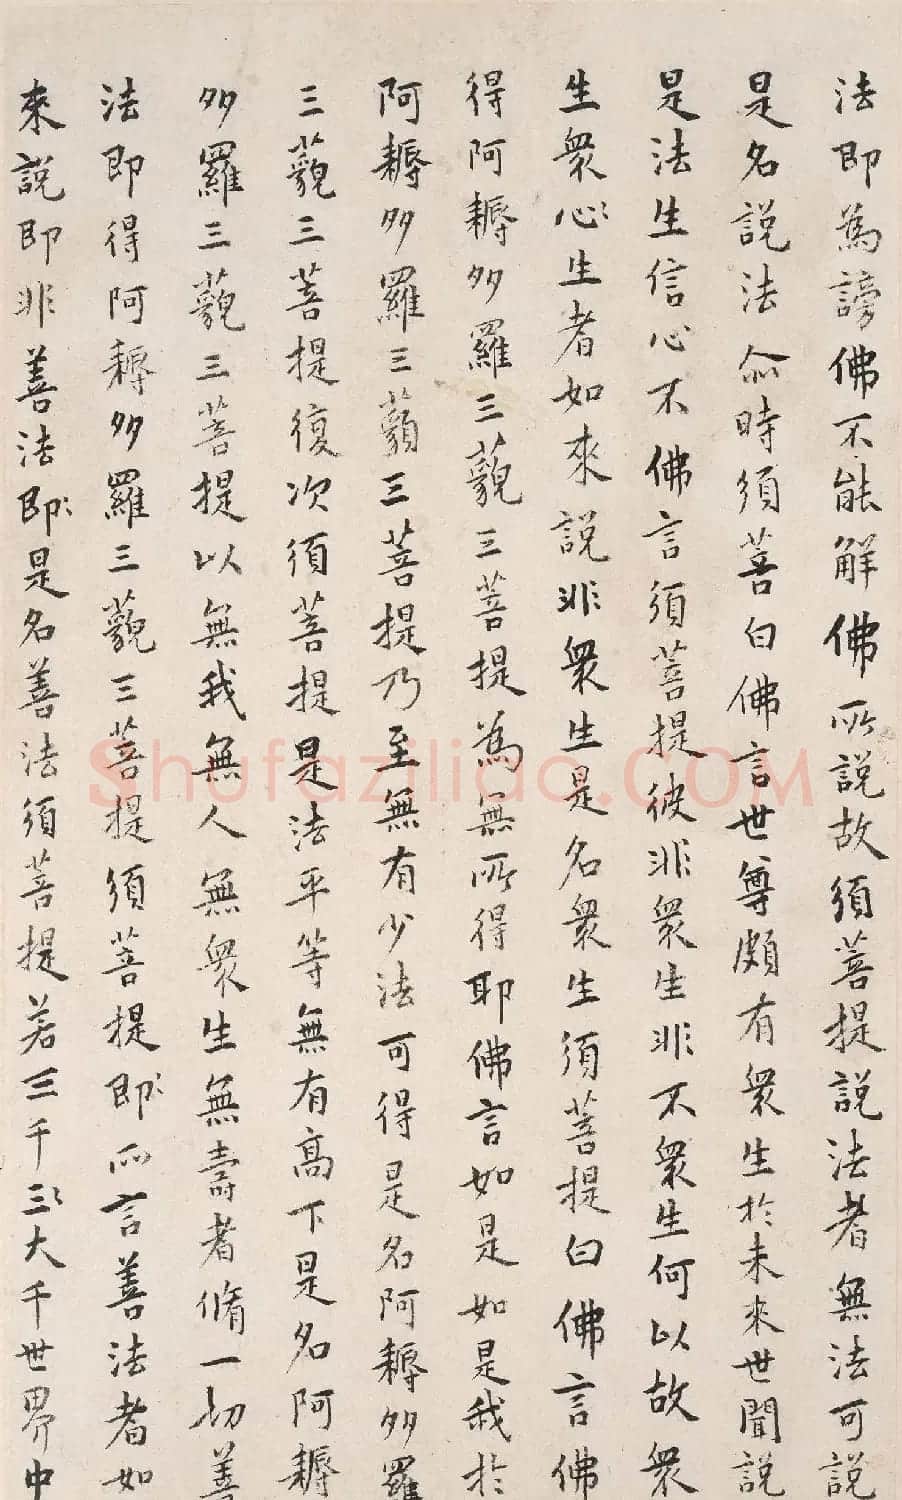 法即為謗佛不能解佛所說故須菩提說法者無法可說
是名說法尒時須菩白佛言世尊頗有衆生於未來世聞說
是法生信心不佛言須菩提彼非衆生非不衆生何以故衆
生衆心生者如來說非衆生是名衆生須菩提白佛言佛
得阿耨多羅三藐三菩提為無所得耶佛言如是如是我於
阿耨多羅三藐三菩提乃至無有少法可得是名阿耨多羅
三藐三菩提復次須菩提是法平等無有高下是名阿耨
多羅三藐三菩提以無我無人無衆生無壽者脩一切善
法即得阿耨多羅三藐三菩提須菩提即所言善法者如
來說即非善法即是名善法須菩提若三千三大千世界中
Shufaziliao.COM